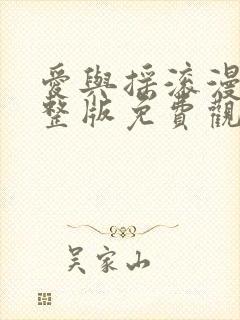 愛與搖滾漫
整版免費觀
吴家山